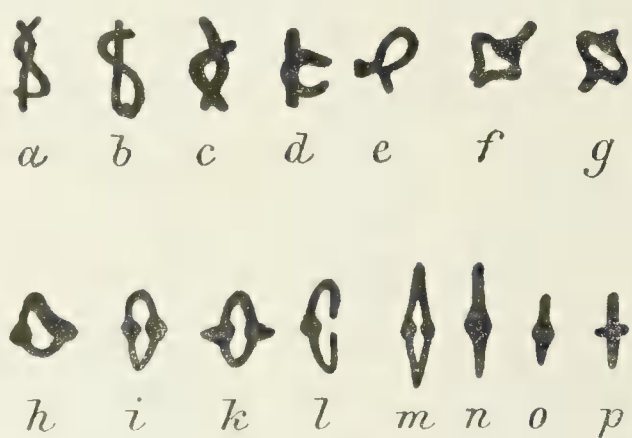 a b c d e f g
h i k l m n o p